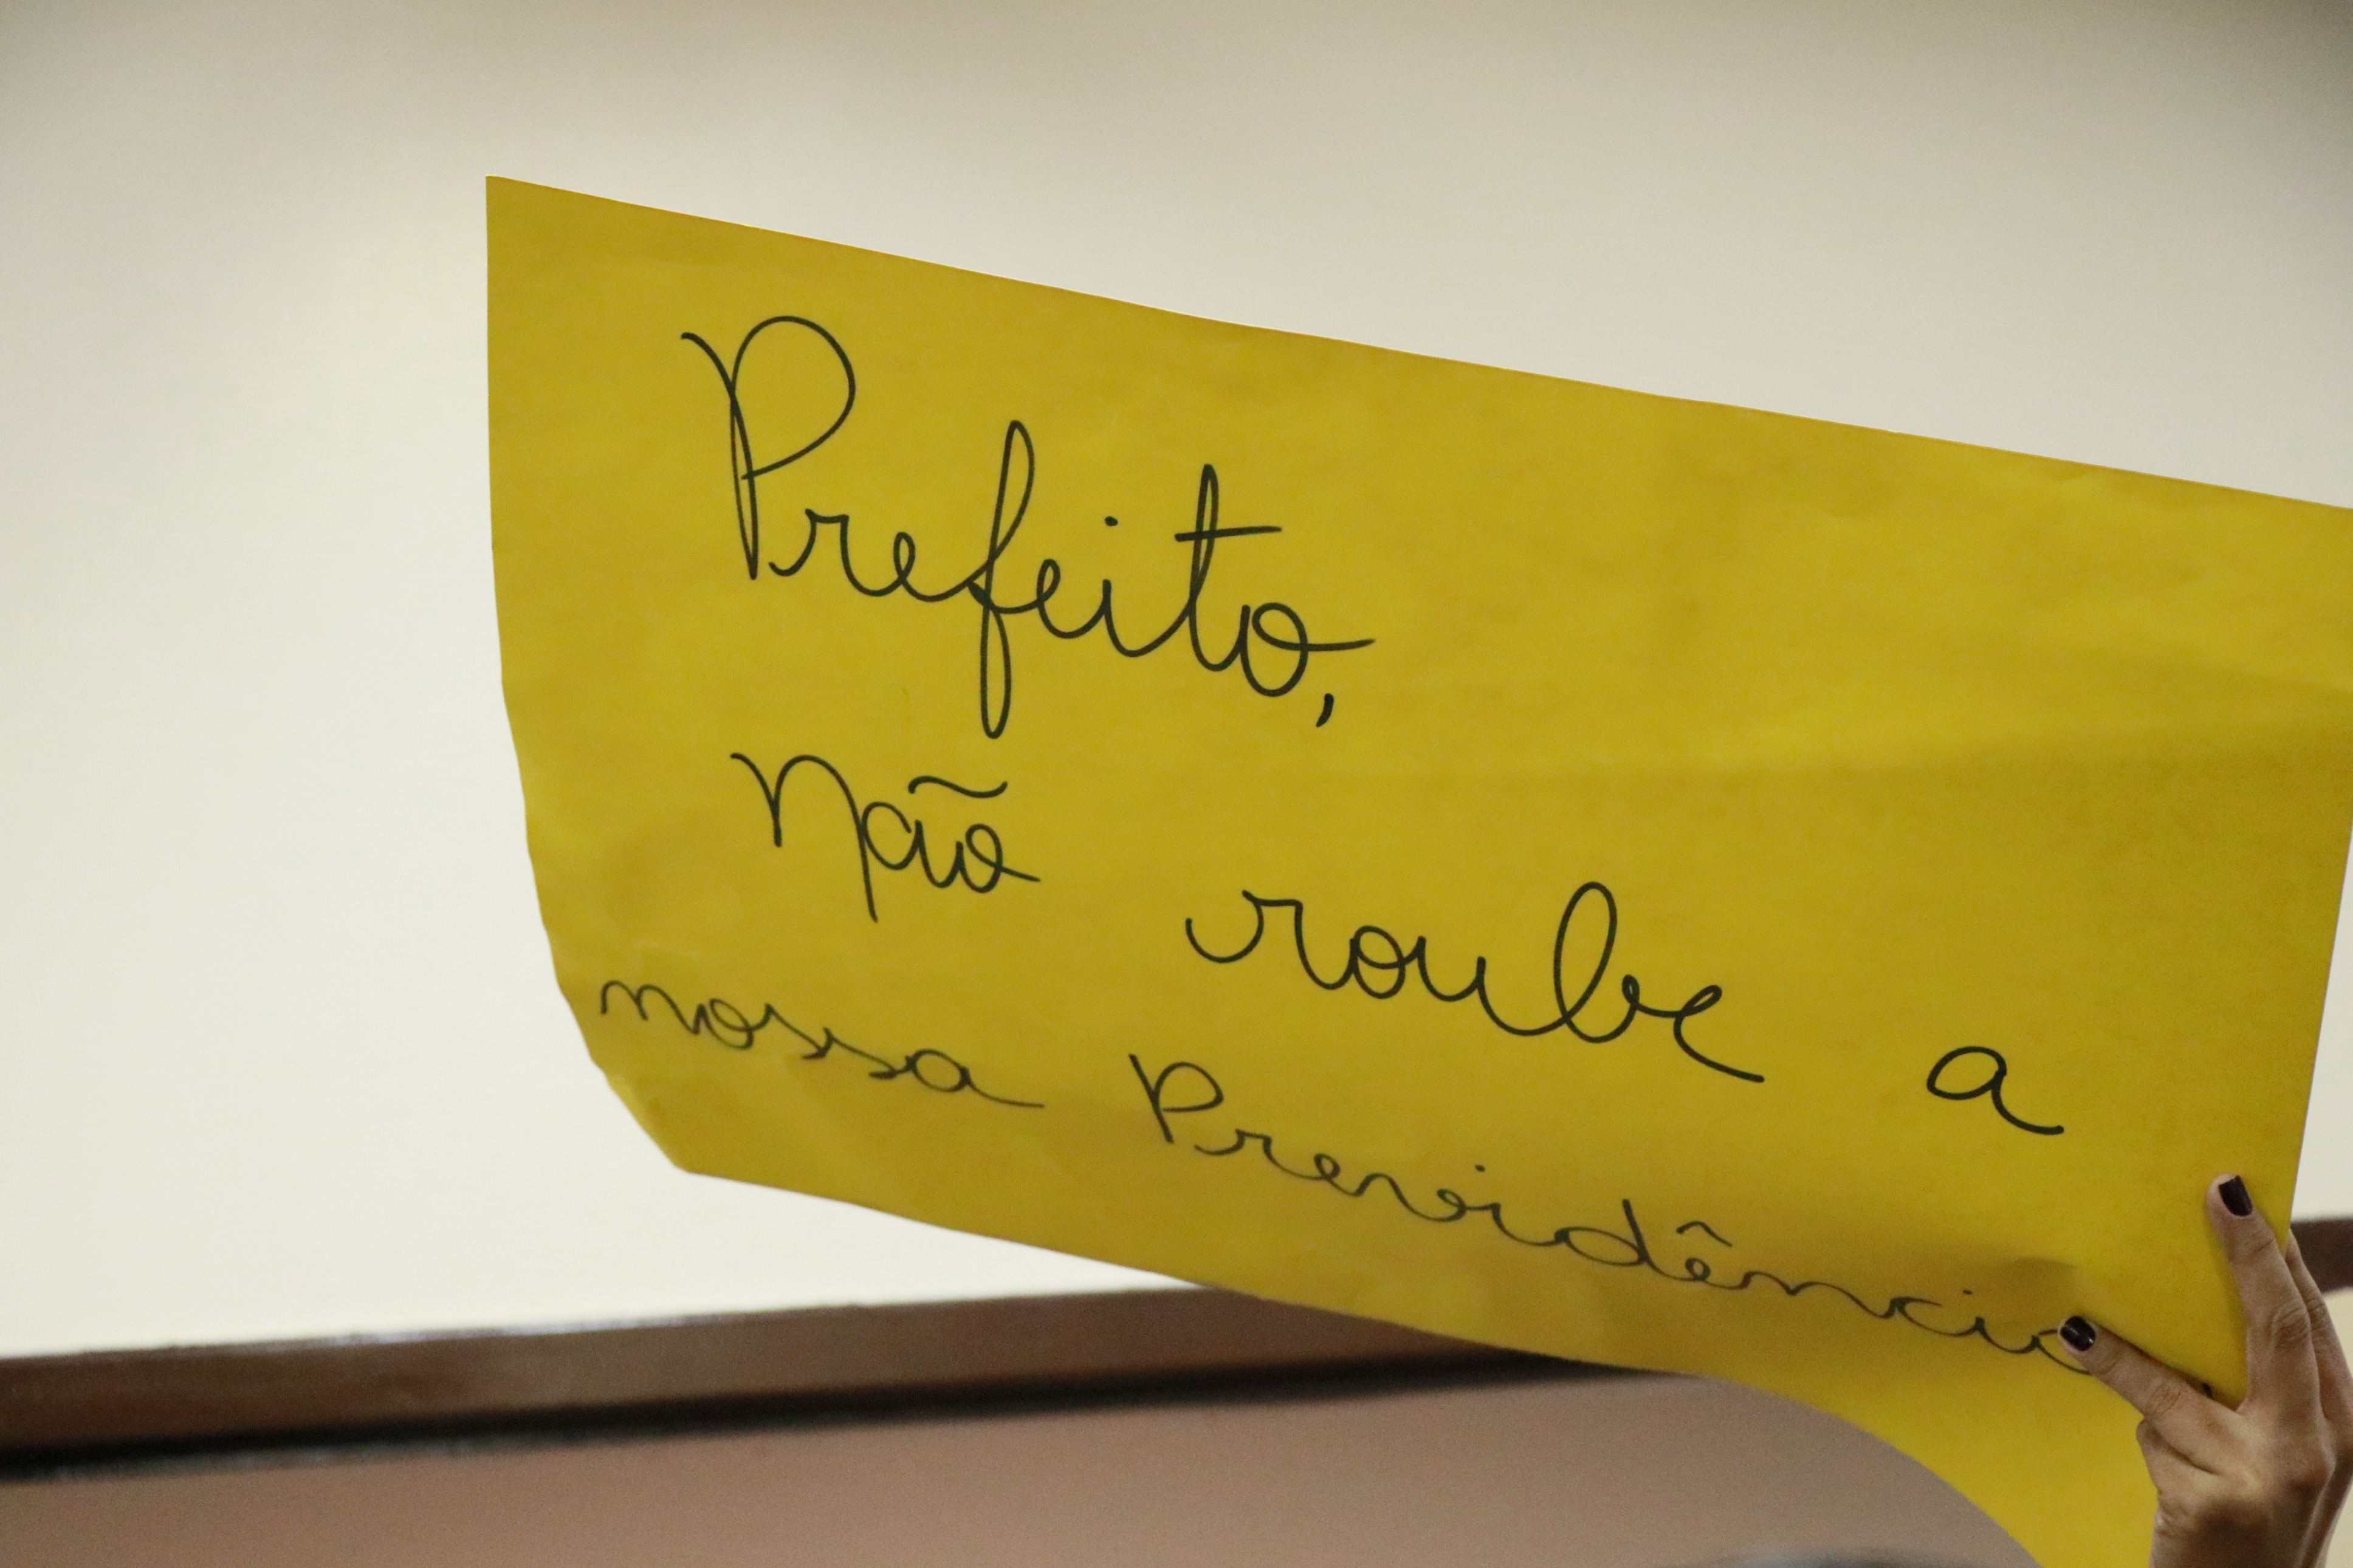 Prefeito,
Não roube a
nossa Previdência